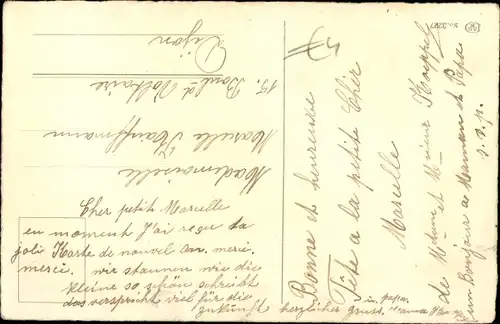 Bonne et heureuse
Fête a la petite Cher
Marcelle
de Mdme et Mr Koeppel
un Bonjour a Maman et Papa
s.s.p.
Mademoiselle
Marcelle Kauffmann
15. Boul-d-Voltaire
Dijon
Cher petite Marcelle
en moment J'ai reçu ta
joli Karte de nouvel an. merci.
merci. wir staunen wie die
kleine so schön schreibt
das verspricht viel für die
zukunft herzlicher gruss.
u. papa.
No. 3797